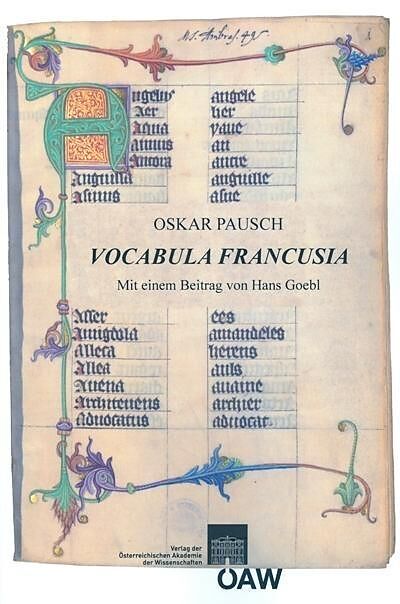 Ms. Ambras. 495
Angelus angele
Aer
Aqua yaue
Annus an
Ancora ancre
Anguilla anguille
Asinus asne
OSKAR PAUSCH
VOCABULA FRANCUSIA
Mit einem Beitrag von Hans Goebl
Asser ees
Amigdola amandeles
Alleca herens
Allea auls
Auena auaine
Architenens archier
aduocatus aduocat
Verlag der
Österreichischen Akademie
der Wissenschaften
ÖAW